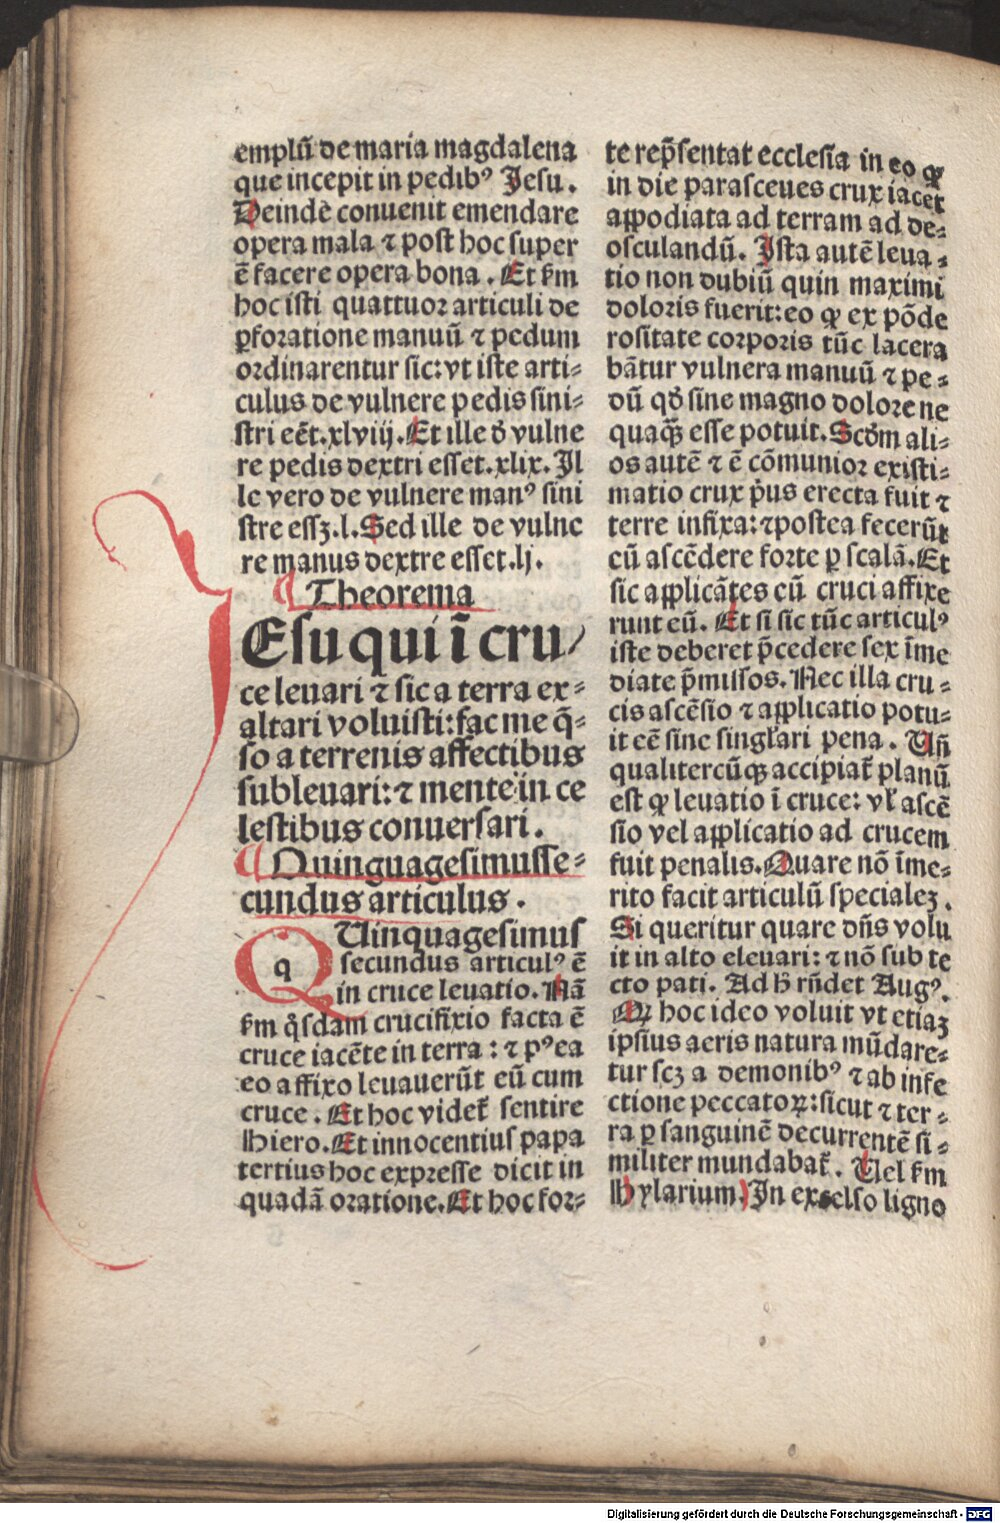 emplū de maria magdalena
que incepit in pedibꝰ Jesu.
Deinde conuenit emendare
opera mala ⁊ post hoc super
ē facere opera bona. Et km
hoc isti quattuor articuli de
ꝑforatione manuū ⁊ pedum
ordinarentur sic: vt iste arti-
culus de vulnere pedis sini-
stri eēt.xlviij. Et ille ð vulne
re pedis dextri esset.xlix. Il
le vero de vulnere manꝰ sini
stre essꝫ.l. Sed ille de vulne
re manus dextre esset.lj.
Theorema
JEsu qui ī cru/
ce leuari ⁊ sic a terra ex-
altari voluisti: fac me q̄-
so a terrenis affectibus
subleuari: ⁊ mente in ce
lestibus conuersari.
Quinquagesimusse-
cundus articulus.
QUinquagesimus
secundus articulꝰ ē
in cruce leuatio. Nā
km q̄sdam crucifixio facta ē
cruce iacēte in terra: ⁊ pꝰea
eo affixo leuauerūt eū cum
cruce. Et hoc videt̄ sentire
Hiero. Et innocentius papa
tertius hoc expresse dicit in
quadā oratione. Et hoc for-
te rep̄sentat ecclesia in eo ꝙ
in die parasceues crux iacet
appodiata ad terram ad de-
osculandū. Ista autē leua-
tio non dubiū quin maximi
doloris fuerit: eo ꝙ ex pōde
rositate corporis tūc lacera
bātur vulnera manuū ⁊ pe-
dū qð sine magno dolore ne
quaꝗ̄ esse potuit. Scðm ali-
os autē ⁊ ē cōmunior existi-
matio crux p̄us erecta fuit ⁊
terre infixa: ⁊ postea fecerūt
eū ascēdere forte ꝑ scalā. Et
sic applicātes eū cruci affixe
runt eū. Et si sic tūc articulꝰ
iste deberet p̄cedere sex īme
diate p̄missos. Nec illa cru-
cis ascēsio ⁊ applicatio potu-
it eē sine singłari pena. Uñ
qualitercūqꝫ accipiat̄ planū
est ꝙ leuatio ī cruce: vł ascē
sio vel applicatio ad crucem
fuit penalis. Quare nō īme-
rito facit articulū specialeꝫ.
Si queritur quare dñs volu
it in alto eleuari: ⁊ nō sub te
cto pati. Ad ħ rñdet Augꝰ.
Qꝛ hoc ideo voluit vt etiaꝫ
ipsius aeris natura mūdare-
tur scꝫ a demonibꝰ ⁊ ab infe
ctione peccatoꝝ: sicut ⁊ ter-
ra ꝑ sanguinē decurrentē si-
militer mundabat̄. Uel km
Hylarium. In excelso ligno